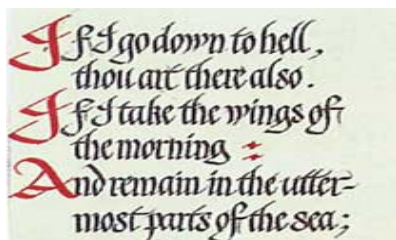 If I go down to hell,
thou art there also.
If I take the wings of
the morning :
And remain in the utter-
most parts of the sea;